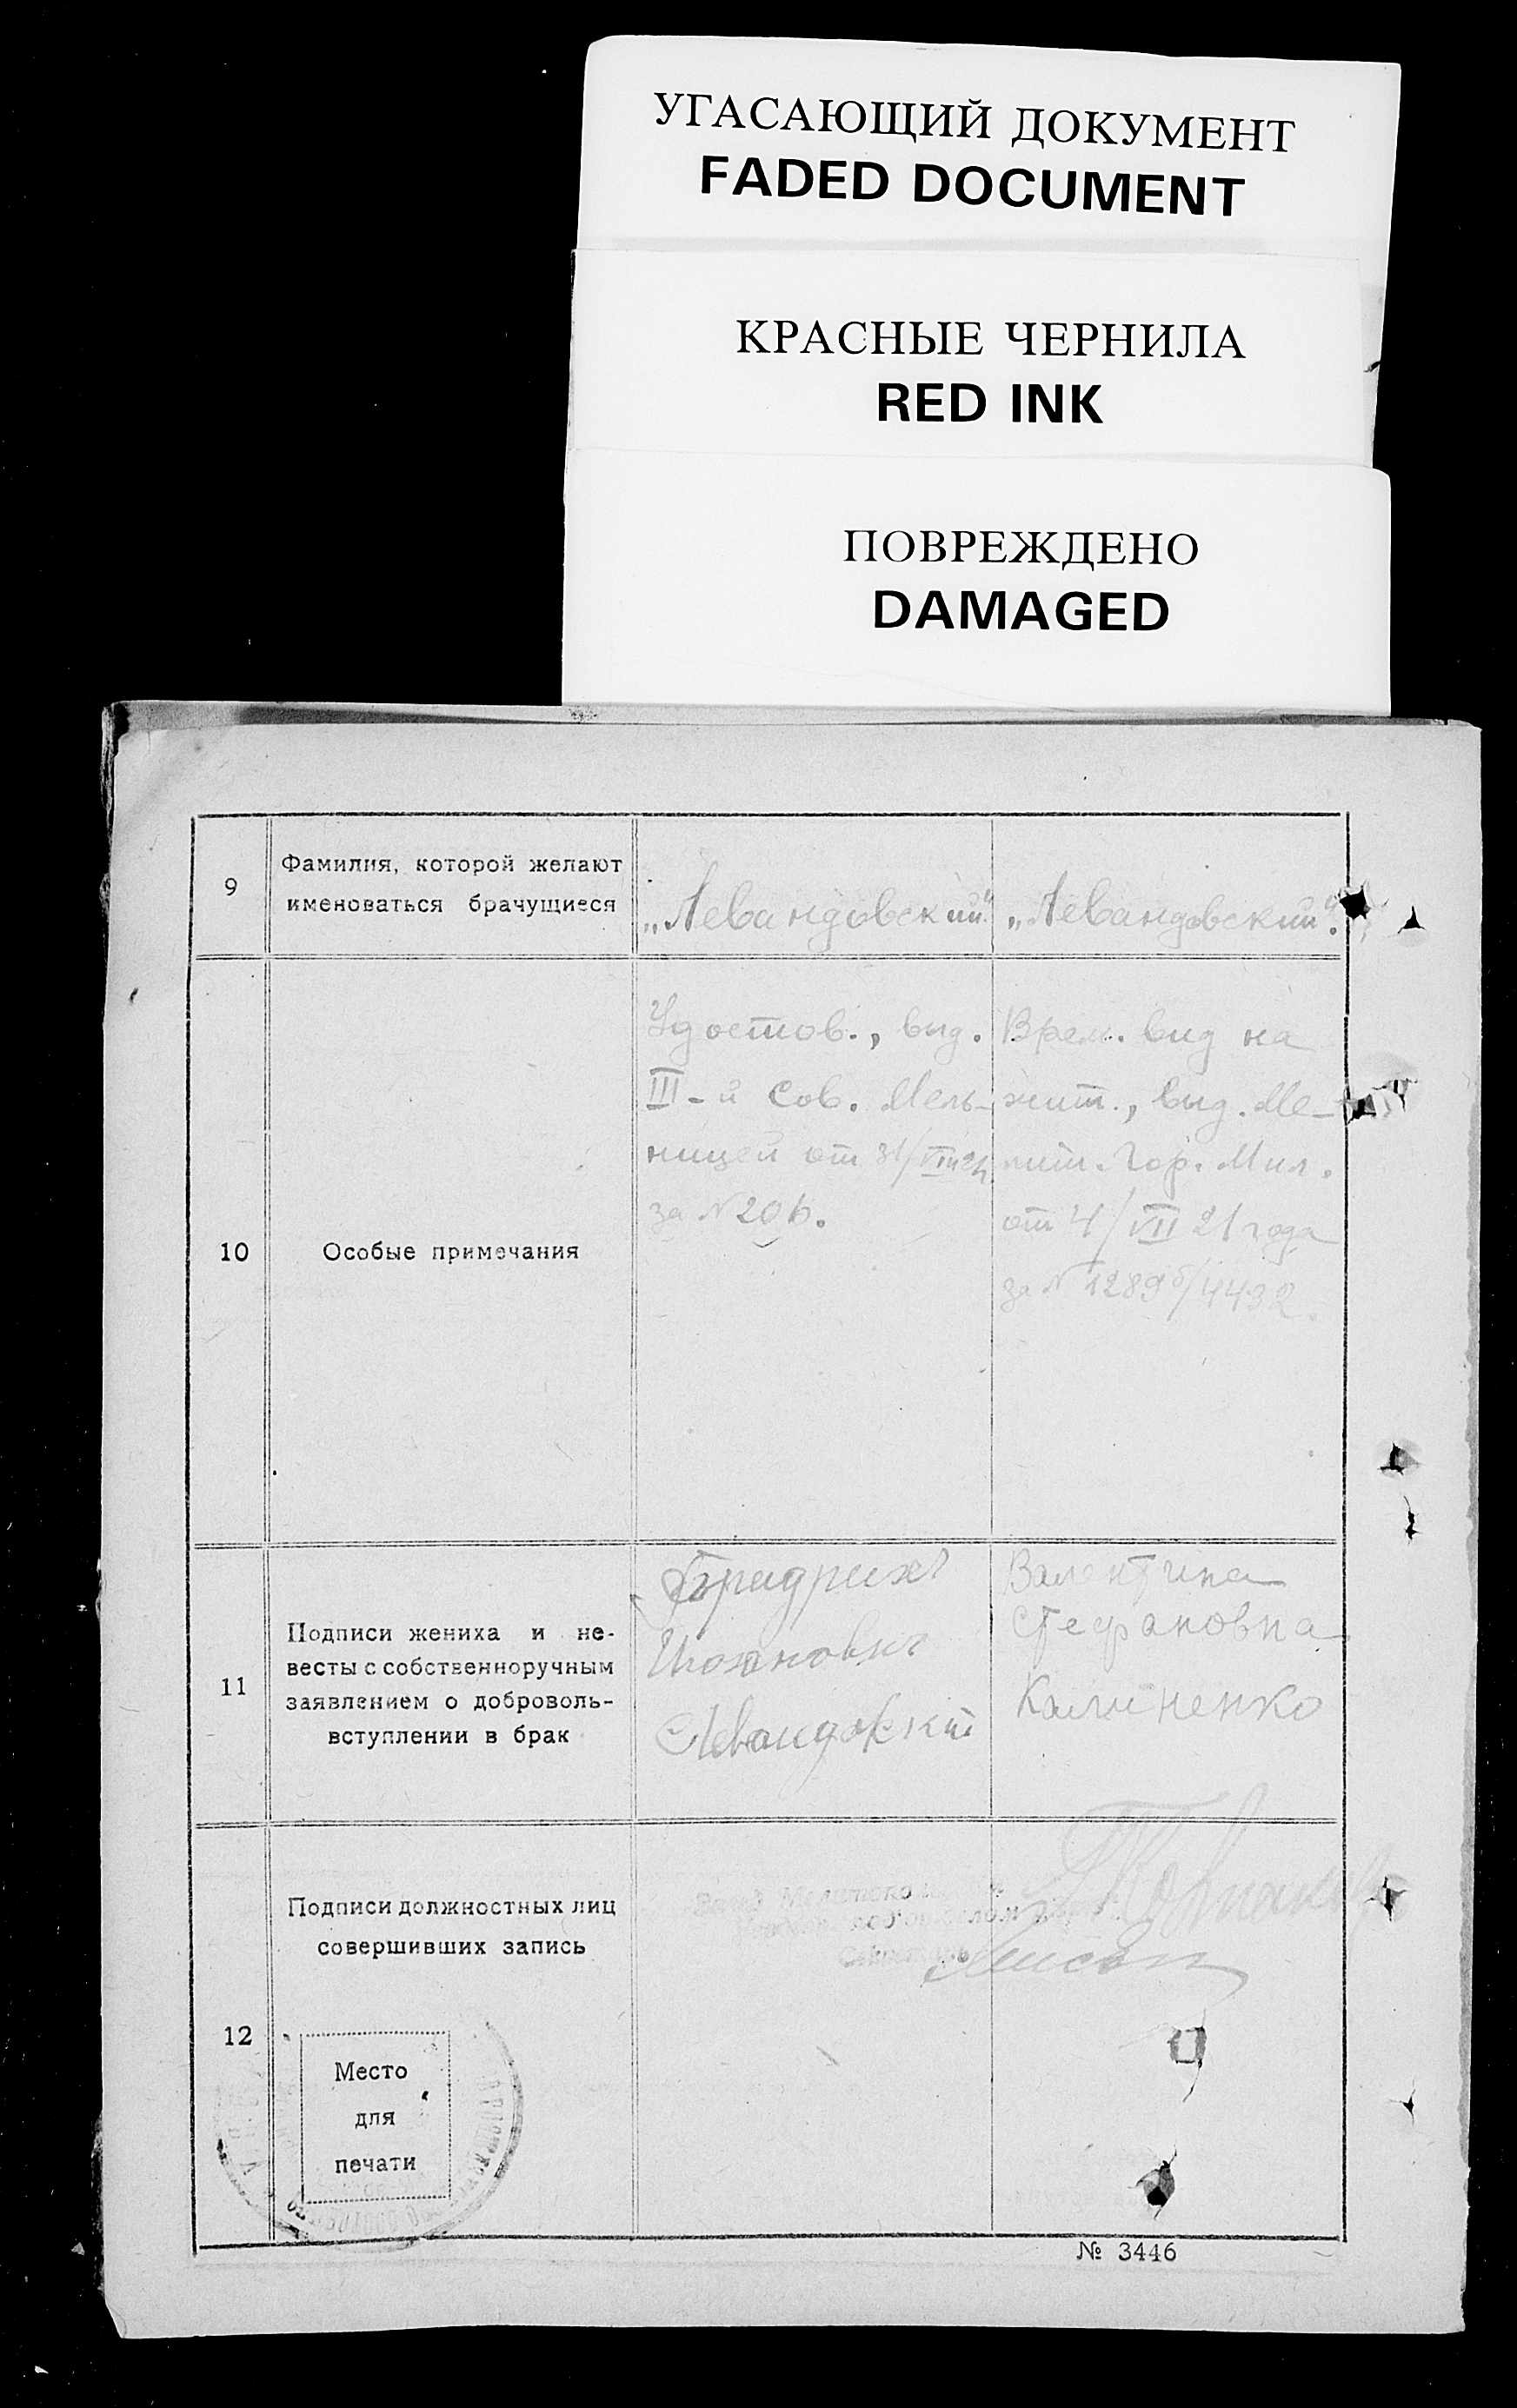 УГАСАЮЩИЙ ДОКУМЕНТ
FADED DOCUMENT
КРАСНЫЕ ЧЕРНИЛА
RED INK
ПОВРЕЖДЕНО
DAMAGED
9
Фамилия, которой желают
именоваться брачущиеся
„Левандовский“
„Левандовский“.
10
Особые примечания
Удостов., выд.
III-й Сов. Мель-
ницей от 31/VIII
за № 206.
Врем. вид на
жит., выд. Ме-
лит. Гор. Мил.
от 4/VII 21 года
за № 1289б/4432.
11
Подписи жениха и не-
весты с собственноручным
заявлением о доброволь-
вступлении в брак
Фридрихъ
Левандовский
Валентина
Стефановна
Калиненко
12
Подписи должностных лиц
совершивших запись
Место
для
печати
№ 3446